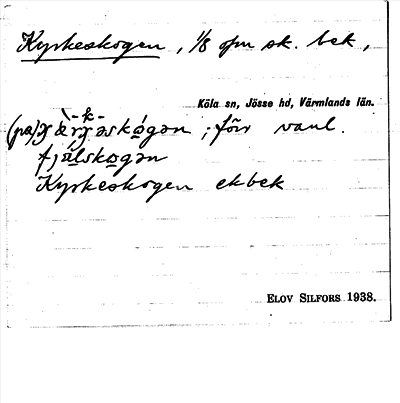 Kyrkeskogen, 1/8 ofm sk. bek,
Köla sn, Jösse hd, Värmlands län.
; förr vanl.
fjälskogən
Kyrkeskogen ekbek
ELOV SILFORS 1938.